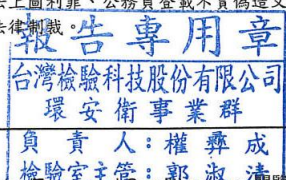 上圖利罪、公務員登載不實偽造文
法律制裁。
報告專用章
台灣檢驗科技股份有限公司
環安衛事業群
負責人：權彝成
檢驗室主管：郭淑清